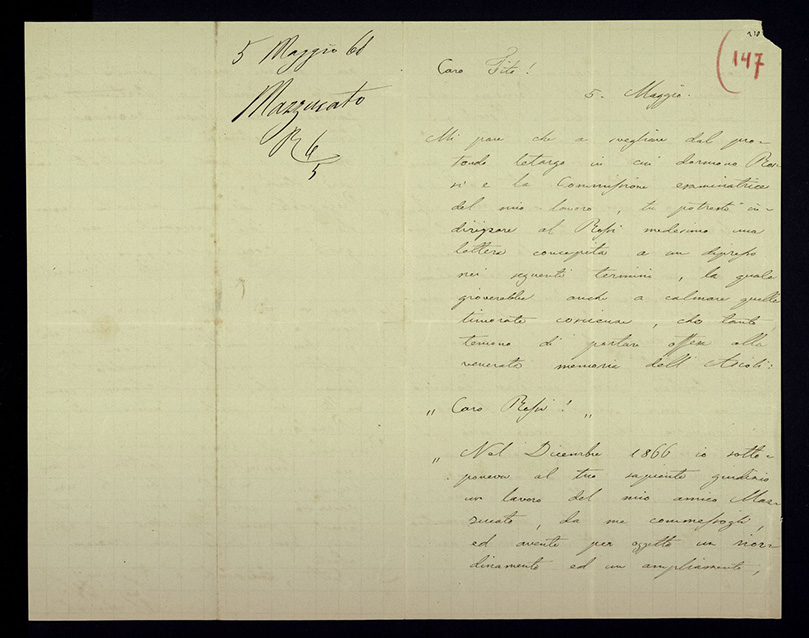 5 Maggio 68
Mazzucato
R 6/5
210
(147
Caro Tito!
5. Maggio.
Mi pare che a svegliare dal pro-
fondo letargo in cui dormono Ros-
si e la Commissione esaminatrice
del mio lavoro, tu potresti in-
dirizzare al Rossi medesimo una
lettera concepita a un dipresso
nei seguenti termini, la quale
gioverebbe anche a calmare quelle
timorate coscienze, che tanto
temono di portare offesa alla
venerata memoria dell'Asioli:
„ Caro Rossi! „
„ Nel Dicembre 1866 io sotto-
poneva al tuo sapiente giudizio
un lavoro del mio amico Maz-
zucato, da me commessogli,
ed avente per oggetto un rior-
dinamento ed un ampliamento,